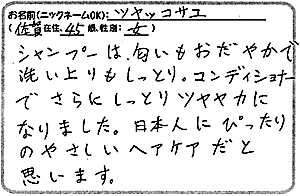 お名前(ニックネームOK): ツヤッコサユ
(佐賀在住、45歳、性別: 女)
シャンプーは、匂いもおだやかで
洗い上りもしっとり。コンディショナー
でさらにしっとりツヤヤカに
なりました。日本人にぴったり
のやさしいヘアケアだと
思います。